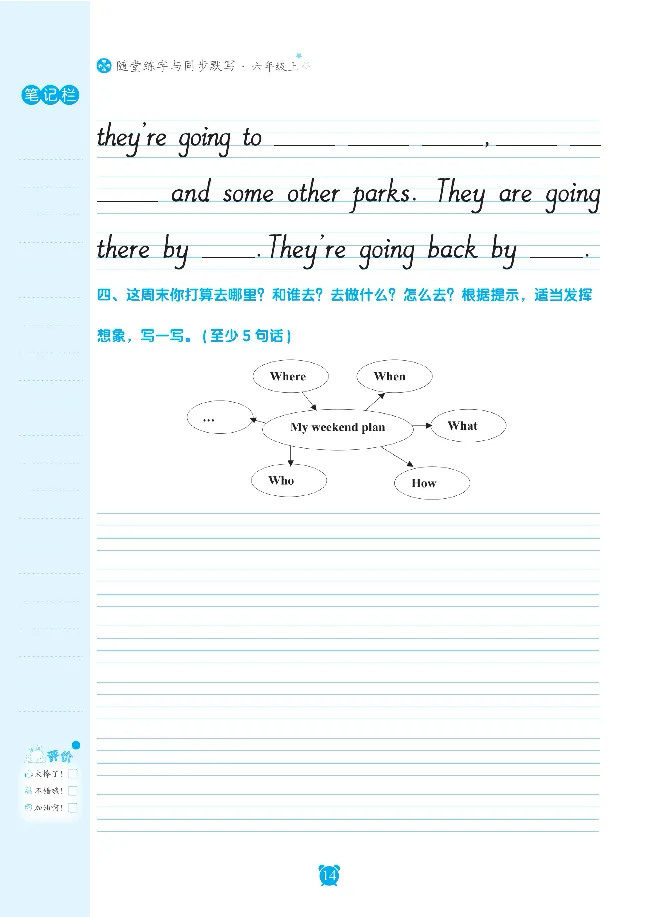 随堂练字与同步默写·六年级上
笔记栏
they're going to _____ _____ _____, _____ ___
_____ and some other parks. They are going
there by _____. They're going back by _____.
四、这周末你打算去哪里？和谁去？去做什么？怎么去？根据提示，适当发挥
想象，写一写。(至少 5 句话)
Where When
... My weekend plan What
Who How
评价
太棒了！
不错哦！
加油啊！
14